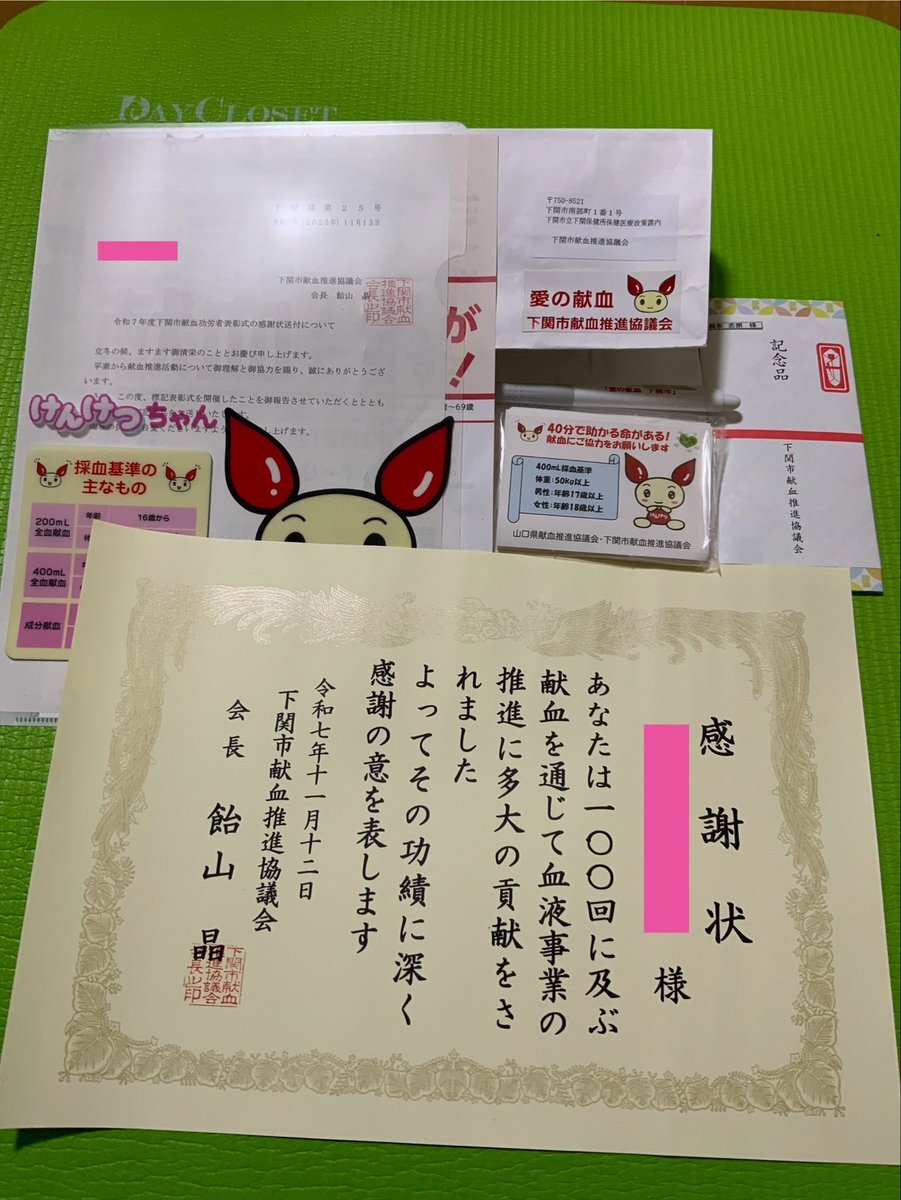 DAYCLOSET
下献協第25号
(2025年)11月13日
下関市献血推進協議会
会長 飴山 晶
下関市献血
推進協議会
会長之印
令和7年度下関市献血功労者表彰式の感謝状送付について
立冬の候、ますます御清栄のこととお慶び申し上げます。
平素から献血推進活動について御理解と御協力を賜り、誠にありがとうござ
います。
この度、標記表彰式を開催したことを御報告させていただくととも
し上げます。
が
!
~69歳
けんけつちゃん
採血基準の
主なもの
200mL
全血献血
年齢
16歳から
400mL
全血献血
成分献血
〒750-8521
下関市南部町1番1号
下関市立下関保健所保健医療政策課内
下関市献血推進協議会
愛の献血
下関市献血推進協議会
「愛の献血 下関市」
40分で助かる命がある!
献血にご協力をお願いします
400mL採血基準
体重:50Kg以上
男性:年齢17歳以上
女性:年齢18歳以上
けんけつ
山口県献血推進協議会・下関市献血推進協議会
様
記念品
下関市献血推進協議会
感謝状
様
あなたは一〇〇回に及ぶ
献血を通じて血液事業の
推進に多大の貢献をさ
れました
よってその功績に深く
感謝の意を表します
令和七年十一月十二日
下関市献血推進協議会
会長 飴山 晶
下関市献血
推進協議会
会長之印